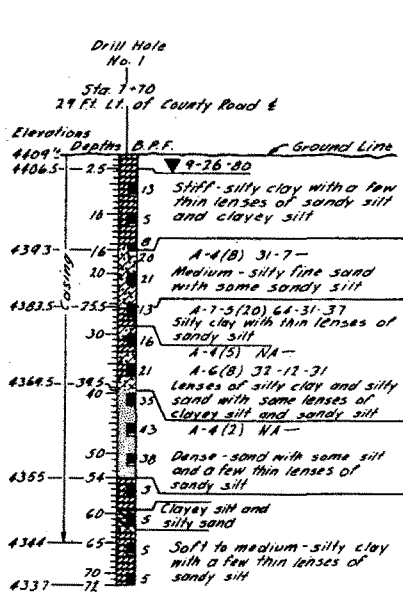 Drill Hole
No. 1
Sta. 7+70
29 Ft. Lt. of County Road ℄
Elevations
Depths B.P.F.
Ground Line
4409±
4406.5 2.5 ▼ 9-26-80
13 Stiff-silty clay with a few
thin lenses of sandy silt
10 5 and clayey silt
8
4393 16
20 A-4(8) 31-7-
20 21 Medium-silty fine sand
with some sandy silt
4383.5 25.5 13 A-7-5(20) 64-31-37
Silty clay with thin lenses of
30 16 sandy silt
A-4(5) NA-
21 A-6(8) 32-12-31
4369.5 39.5 Lenses of silty clay and silty
40 35 sand with some lenses of
clayey silt and sandy silt
43 A-4(2) NA-
50 38 Dense-sand with some silt
and a few thin lenses of
4355 54 sandy silt
3
60 Clayey silt and
5 silty sand
4344 65 5 Soft to medium-silty clay
with a few thin lenses of
70 5 sandy silt
4337 72
Casing